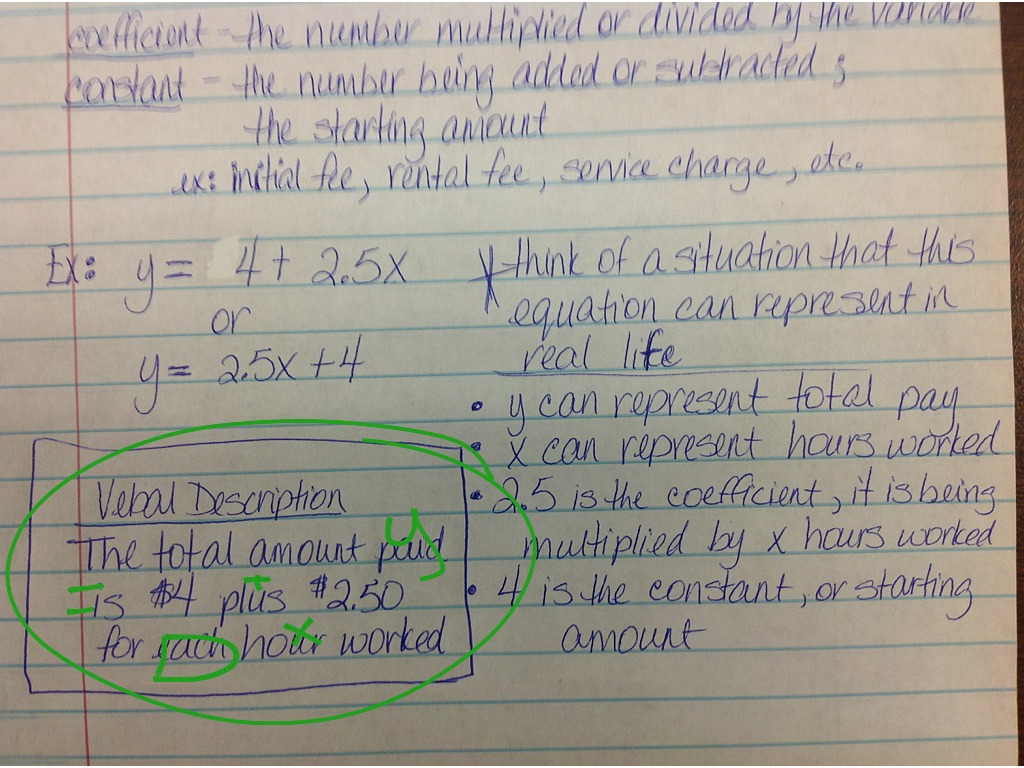 coefficient - the number multiplied or divided by the variable
constant - the number being added or subtracted ;
the starting amount
ex: initial fee, rental fee, service charge, etc.
Ex: y = 4 + 2.5x
or
y = 2.5x + 4
Vebal Description
The total amount paid
y
= is $4 plus $2.50
+
for each hour worked
x
think of a situation that this
equation can represent in
real life
• y can represent total pay
• x can represent hours worked
• 2.5 is the coefficient, it is being
multiplied by x hours worked
• 4 is the constant, or starting
amount